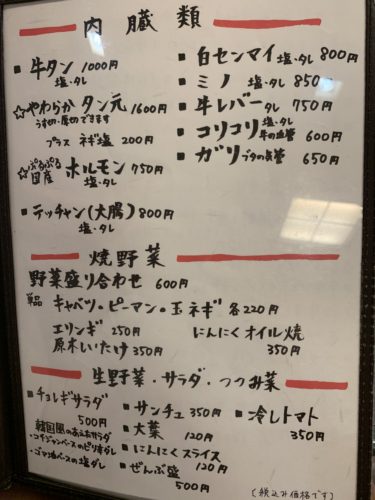 内臓類
牛タン 1000円
塩・タレ
☆やわらか タン元 1600円
うす切・厚切できます
プラス ネギ塩 200円
☆ぷるぷる国産 ホルモン 750円
塩・タレ
テッチャン(大腸) 800円
塩・タレ
白センマイ 塩・タレ 800円
ミノ 塩・タレ 850円
牛レバー タレ 750円
コリコリ 塩・タレ 牛の血管 600円
ガリ ブタの 650円
焼野菜
野菜盛り合わせ 600円
単品 キャベツ・ピーマン・玉ネギ 各220円
エリンギ 250円
原木しいたけ 350円
にんにくオイル焼
350円
生野菜・サラダ・つつみ菜
チョレギサラダ
500円
韓国風のあえたサラダ
・コチジャンベースのピリ辛ダレ
・ゴマ油ベースの塩ダレ
サンチュ 350円
大葉 120円
にんにくスライス
120円
ぜんぶ盛
500円
冷しトマト
350円
(税込み価格です)